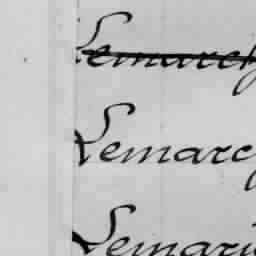 Lemarch
Lemarcq
Lemari